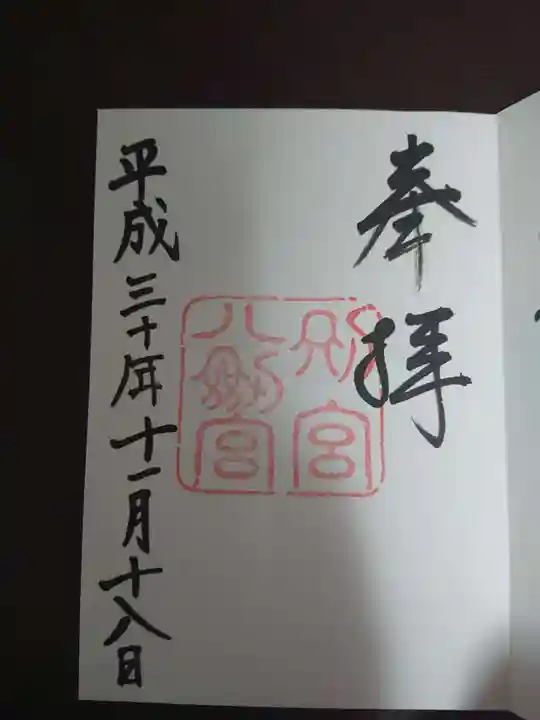 奉拝
別宮
八剣宮
平成三十年十一月十八日